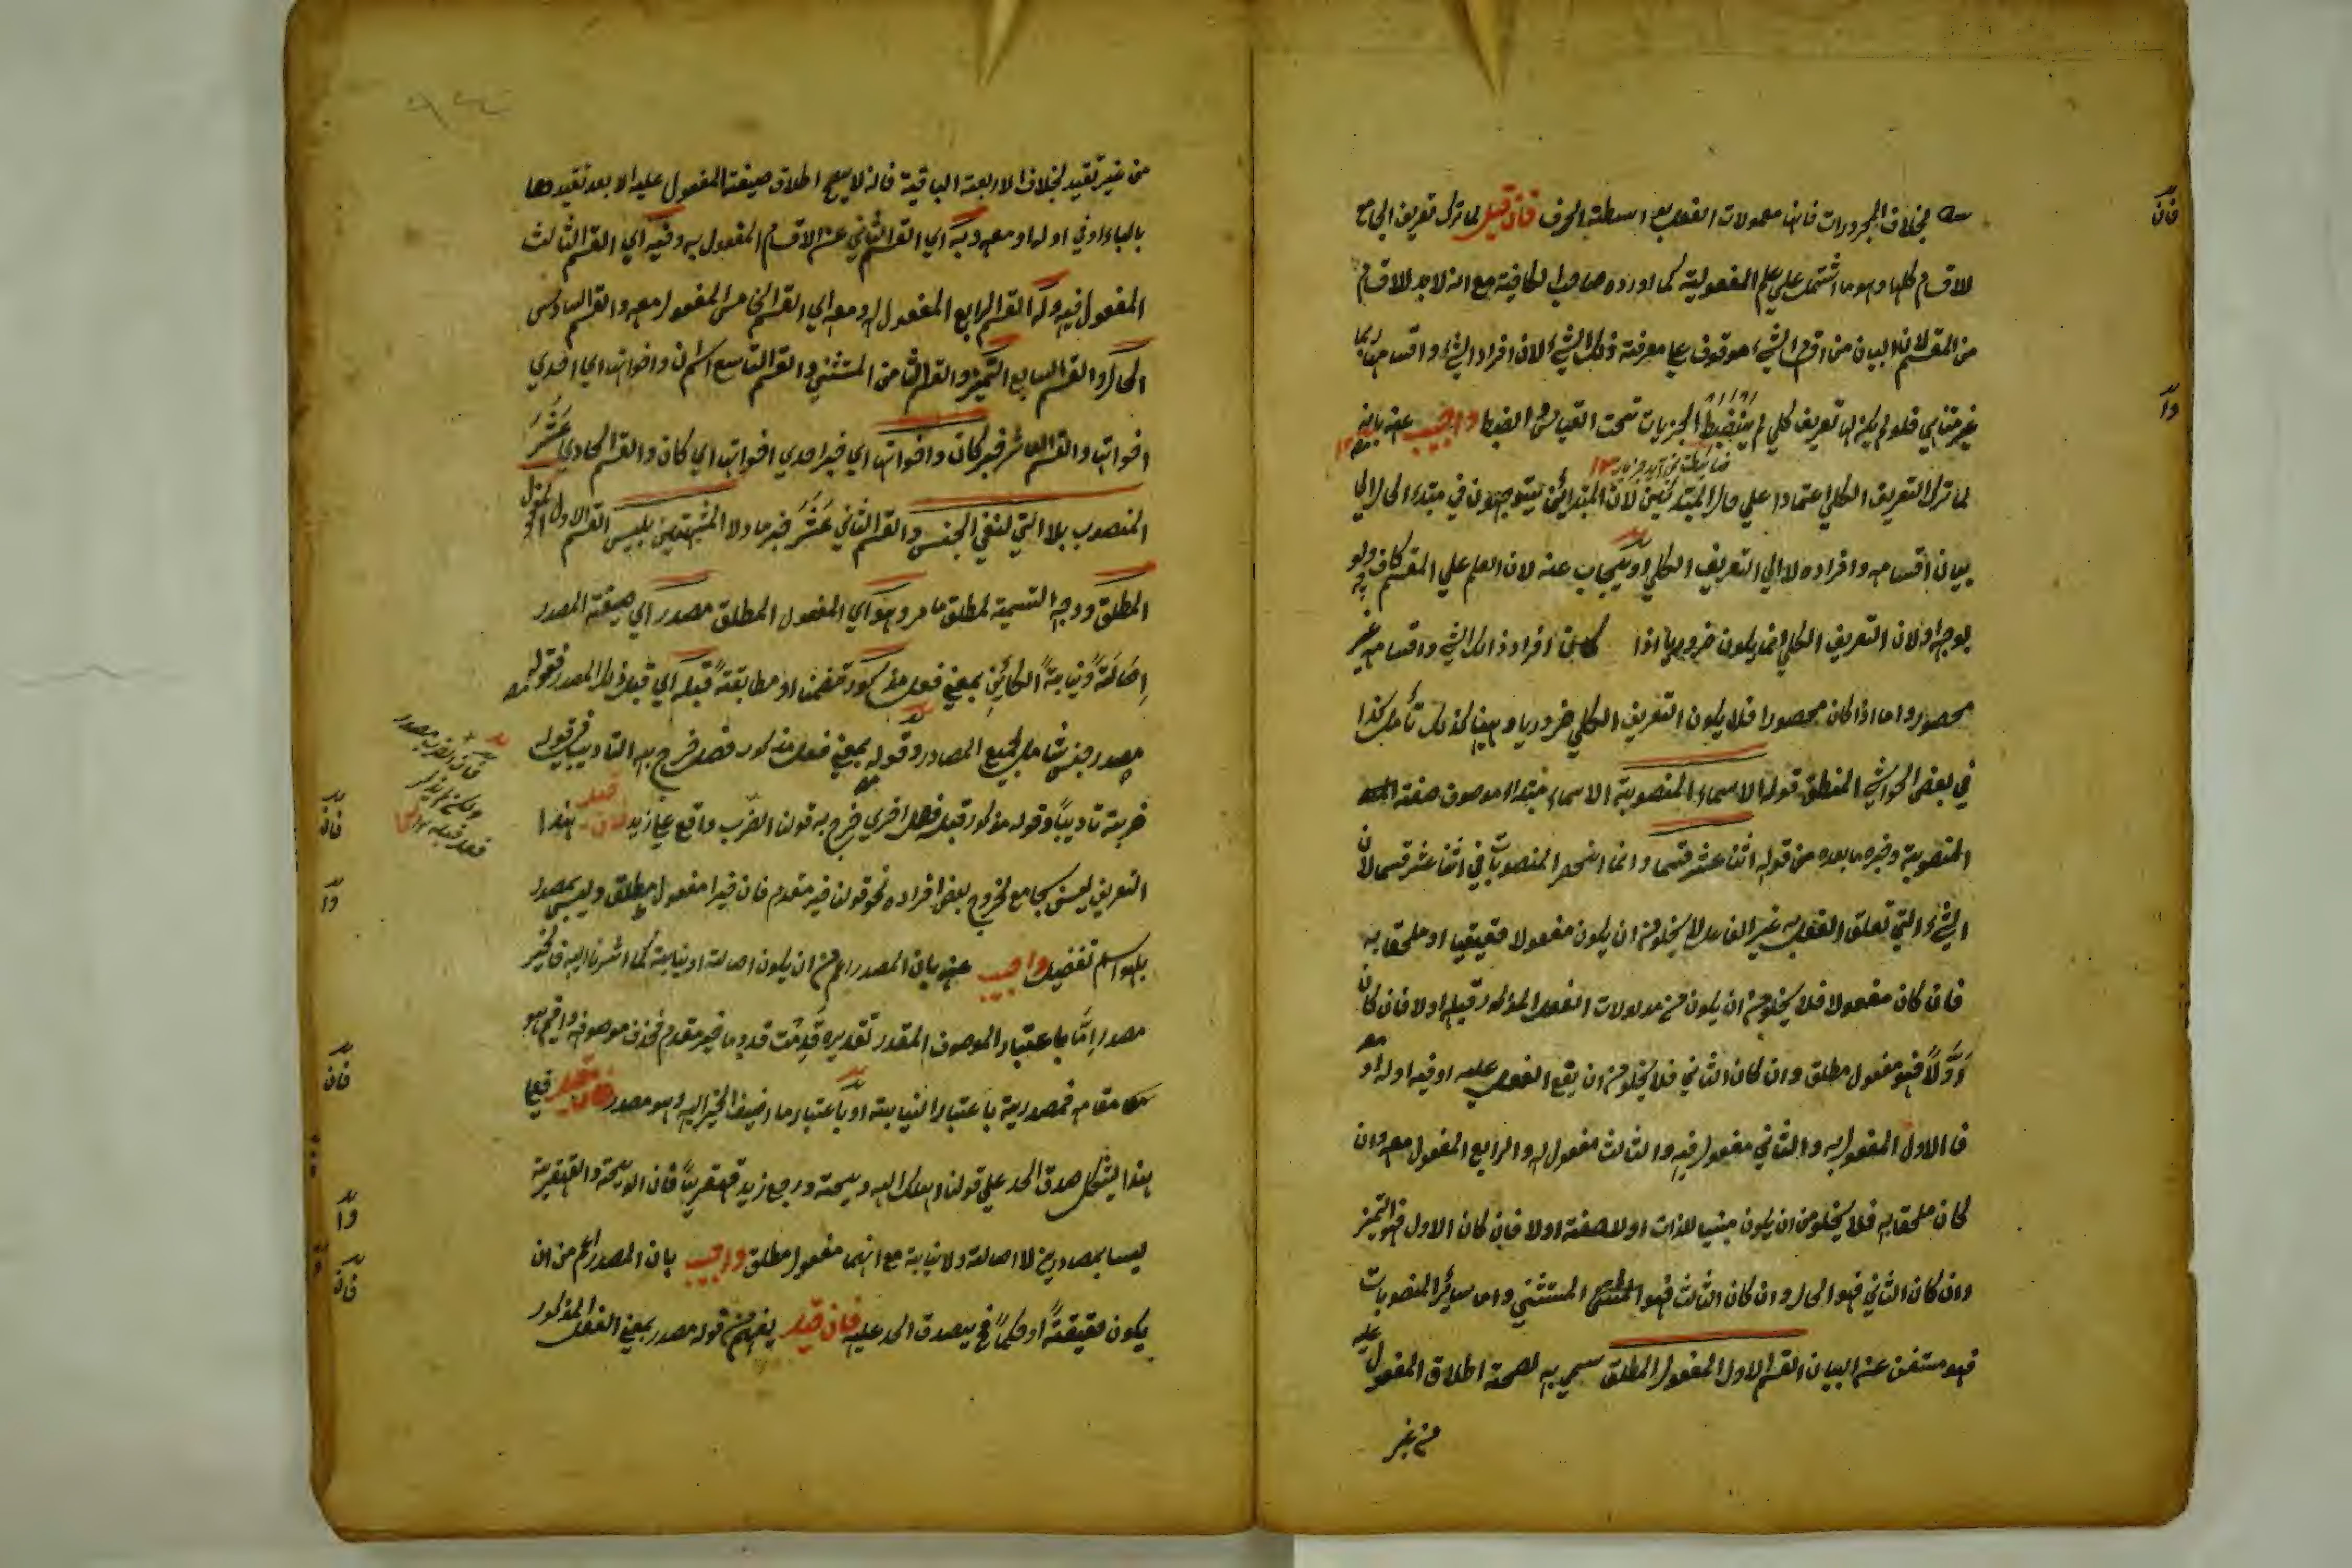 بخلاف المجرورات فانها معمولات الفعل بواسطة الحرف فان قيل لما ترك تعريف الجامع
للاقسام كلها وهو ما اشتمل على علم المفعولية كما اورده صاحب الكافية مع انه لابد للاقسام
من المقسم لان البيان من اقسام الشيء موقوف على معرفة ذلك الشيء لان افراد الشيء واقسامه ربما
غير متناهي فلو لم يكن لها تعريف كلي لم ينضبط الجزيات تحت القياس والضبط واجيب عنه بانه
لما ترك التعريف الكلي اعتمادا علي حال المبتدئين لان المبتدائين يتوجهون في مبتدء الحال الي
بيان اقسامه وافراده لا الي التعريف الكلي او يجاب عنه لان العلم علي المقسم كاف ولو
بوجه اولان التعريف الكلي انما يكون ضروريا اذا كانت افراد ذالك الشيء واقسامه غير
محصور واما اذا كان محصورا فلا يكون التعريف الكلي ضروريا وههنا كذلك تأمل كذا
في بعض الحواشي المنطق قوله الاسماء المنصوبة الاسماء مبتداء موصوف صفته
المنصوبة وخبره ما بعده من قوله اثنا عشر قسما وانما انحصر المنصوبات في اثنا عشر قسما لان
الشيء التي تعلق الفعل به غير الفاعل لا يخلو من ان يكون مفعولا حقيقيا او ملحقا به
فان كان مفعولا فلا يخلو من ان يكون من مدلولات الفعل المذكور قبله اولا فان كان
اوّلاً فهو مفعول مطلق وان كان الثاني فلا يخلو من ان يقع الفعل عليه او فيه او له او معه
فالاول المفعول به والثاني مفعول فيه والثالث مفعول له والرابع المفعول معه وان
كان ملحقا به فلا يخلو من ان يكون مبنيا للذات اولا صفة اولا فان كان الاول فهو التميز
وان كان الثاني فهو الحال وان كان الثالث فهو المستثني واما سائر المنصوبات
فهو مستغن عن البيان القسم الاول المفعول المطلق سمي به لصحة اطلاق المفعول عليه
من غير
من غير تقيد بخلاف الاربعة الباقية فانه لا يصح اطلاق صيغة المفعول عليه الا بعد تقيدها
بالباء او في او له او معه وبه اي القسم الثاني من الاقسام المفعول به وفيه اي القسم الثالث
المفعول فيه وله القسم الرابع المفعول له ومعه اي القسم الخامس المفعول معه والقسم السادس
الحال والقسم السابع التميز والقسم الثامن المستثني والقسم التاسع اسم ان واخواتها اي احدي
اخواتها والقسم العاشر خبر كان واخواتها اي خبر احدي اخواتها اي كان والقسم الحادي عَشَرَ
المنصوب بلا التي لنفي الجنس والقسم الثاني عَشَرَ خبر ما ولا المشبهتين بليس القسم الاول المفعول
المطلق ووجه التسمية لمطلق ما مر وهو اي المفعول المطلق مصدر اي صيغة المصدر
اِصَالَةً ونيابةً الكائن بمعني فعل مذكور تضمنا او مطابقةً قبله اي قبل ذلك المصدر فقوله
مصدر جنس شامل لجميع المصادر وقوله بمعني فعل مذكور فصل خرج به التاديب في قوله
ضربته تاديباً وقوله مذكور قبله فصل اخري خرج به قولنا الضرب واقع علي زيد فان قيل هذا
التعريف ليس بجامع لخروج بعض افراده نحو قولنا خير مقدم فان خيرا مفعول مطلق وليس بمصدر
بل هو اسم تفضيل واجيب عنه بان المصدر اعم من ان يكون اصالة او نيابة كما اشرنا اليه فالخير
مصدر اِمّا باعتبار الموصوف المقدر تقديره قَدِمْت قدوما خير مقدم فحذف موصوفه واقيم هو
مقامه فمصدرية باعتبار النيابة او باعتبار ما اضيف الخير اليه وهو مصدر فان قيل فعلي
هذا يشكل صدق الحد علي قولنا اهلك اليه ويحته ورجع زيد قهقرياً فان الويحة والقهقرية
ليسا بمصادرين لا اصالة ولا نيابة مع انهما مفعول مطلق واجيب بان المصدر اعم من ان
يكون حقيقةً او حكماً فح يصدق الحد عليه فان قيل يفهم من قوله مصدر بمعني الفعل المذكور
فان
وا
فان
وا
فان
وا
فان